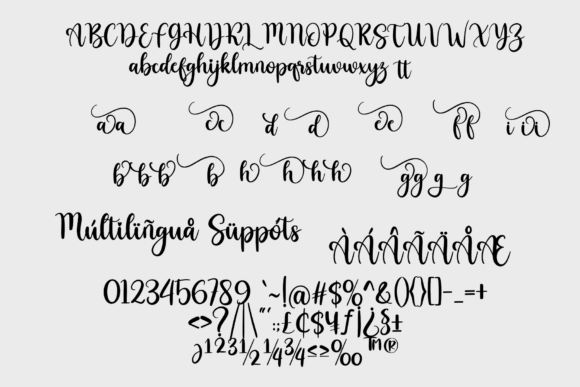 ABCDEFGHIJKLMNOPQRSTUVWXYZ
abcdefghijklmnopqrstuvwxyz tt
a a c c d d e e f f i i i
b b b b h h h h g g g g
Múltilïñguå Süppóts
ÀÁÂÃÄÅÆ
0123456789 `~!@#$%^&(){}[]-_=+
<>?/|\"':;£¢$¥ƒ¡¿§±
¹²³½¼¾≤≥‰™®